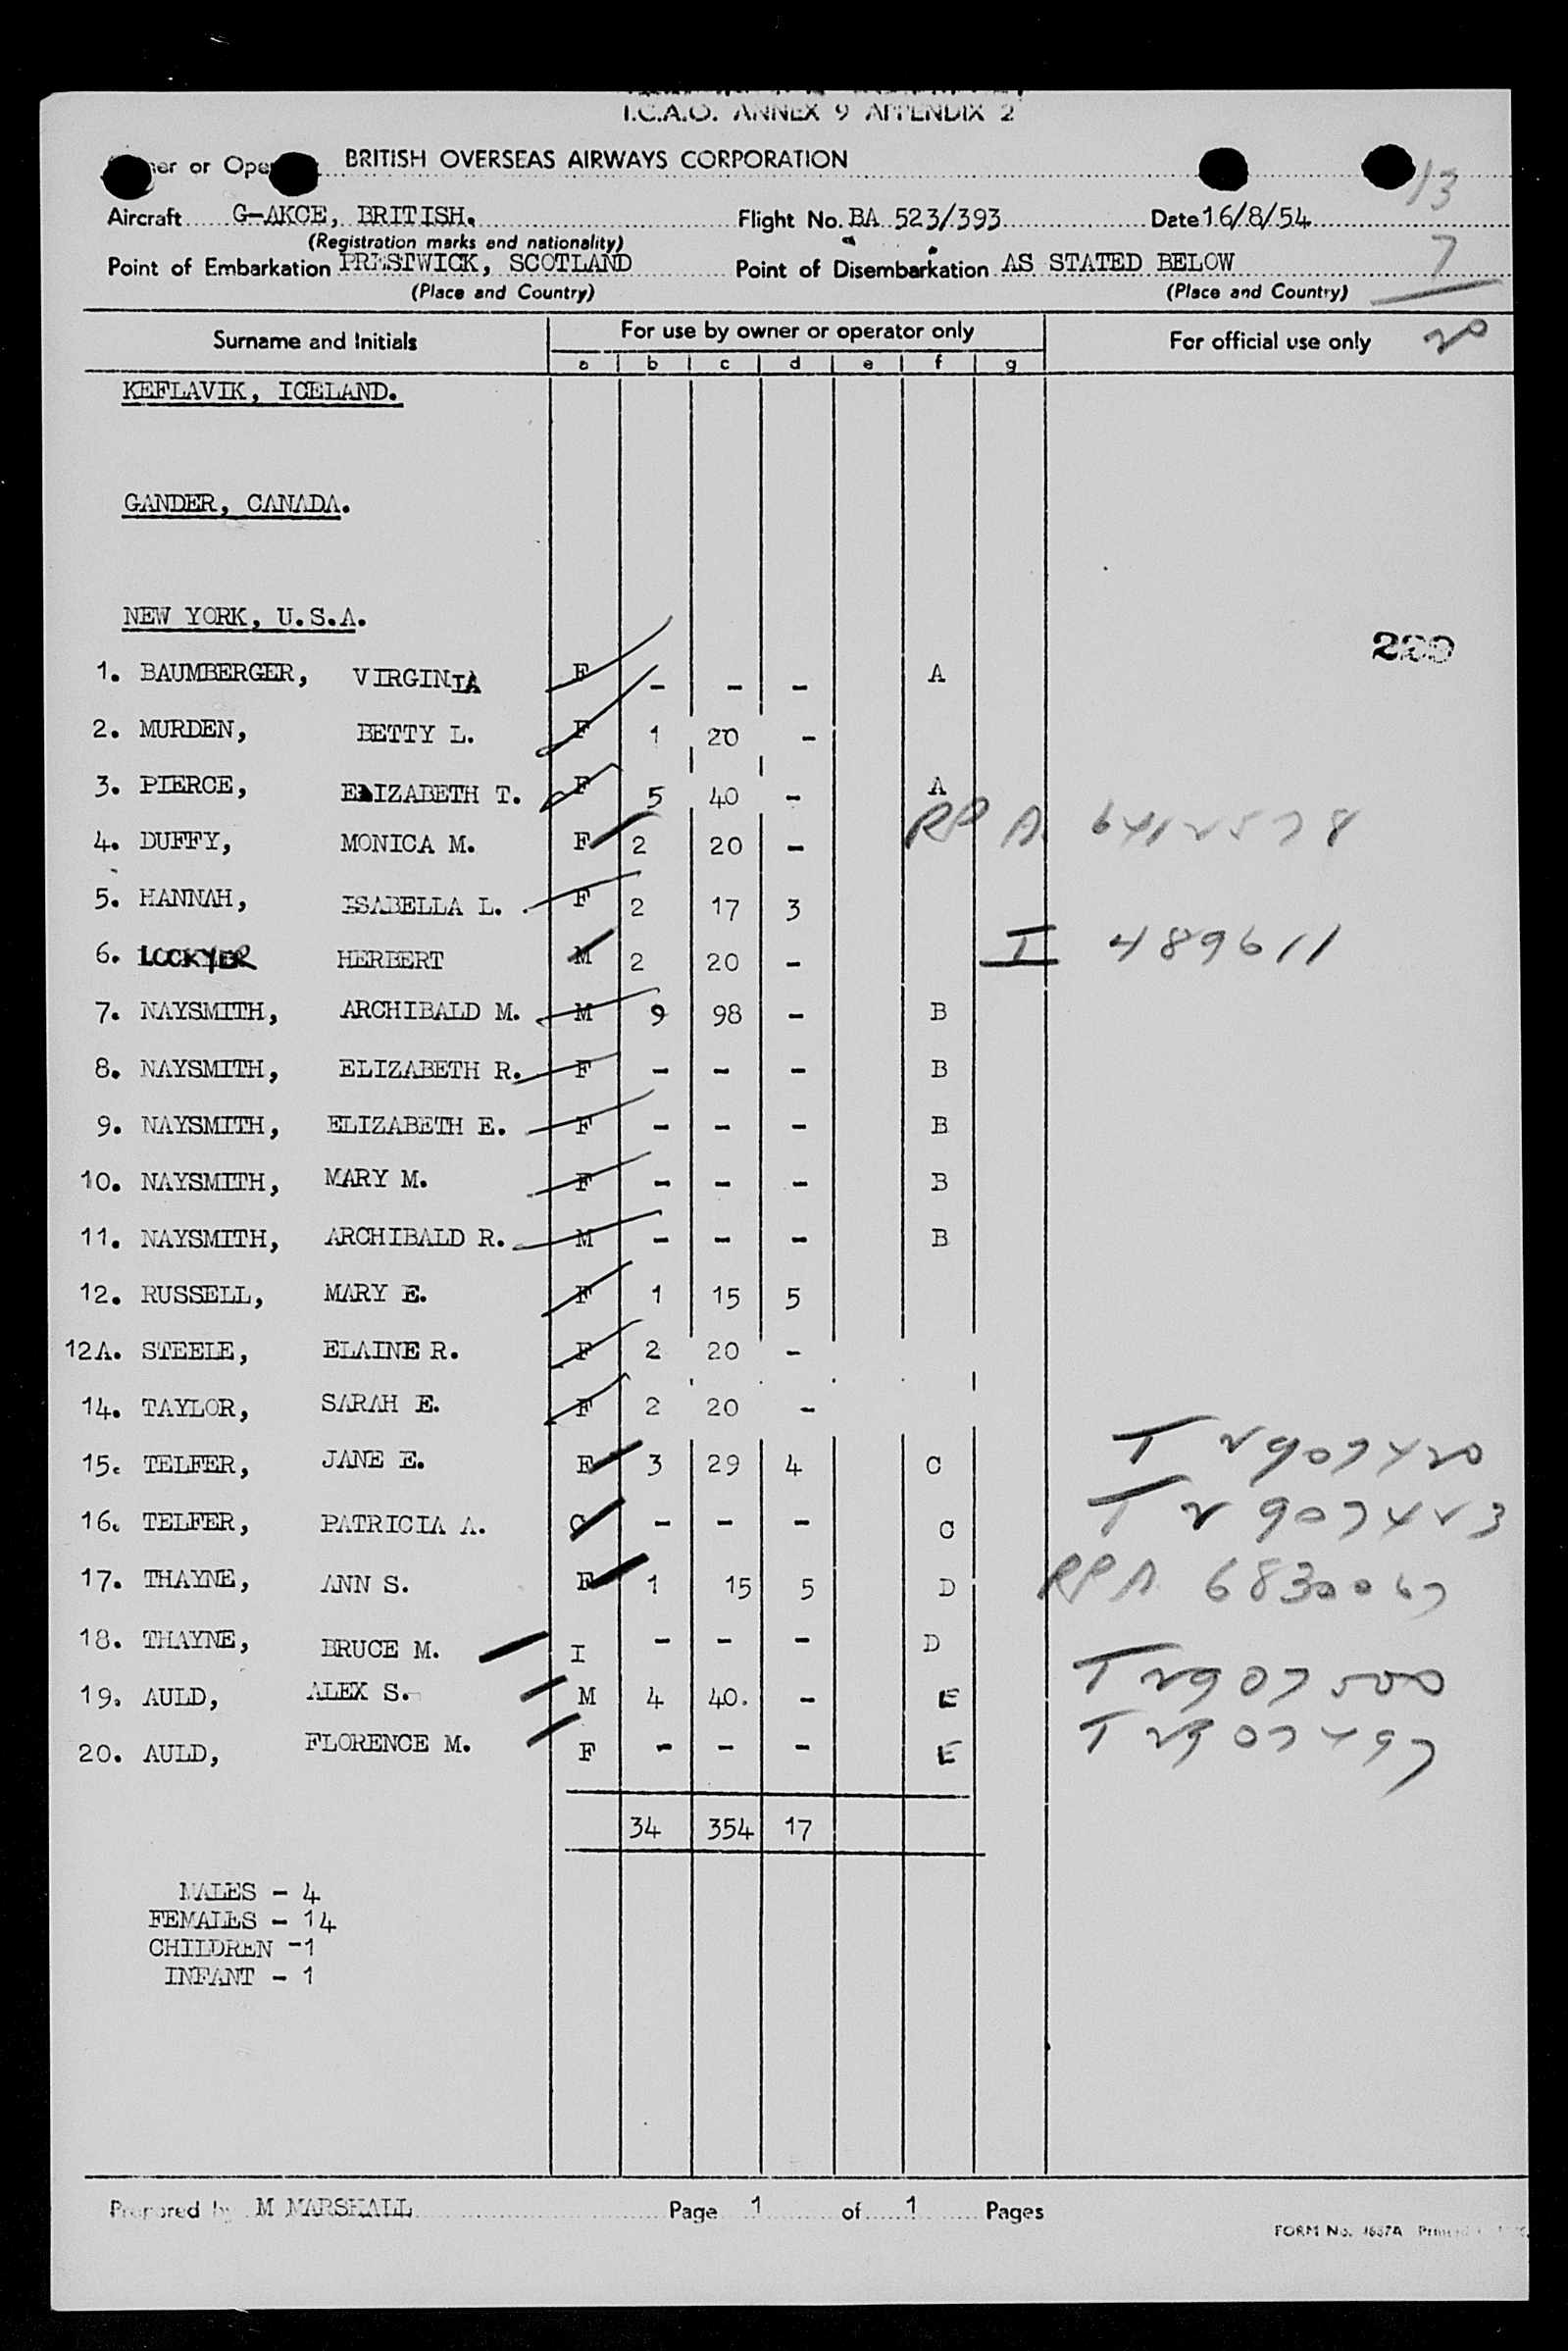 I.C.A.O. ANNEX 9 APPENDIX 2
or BRITISH OVERSEAS AIRWAYS CORPORATION
13
Aircraft G-AKCE, BRITISH. Flight No. BA 523/393 Date 16/8/54
(Registration marks and nationality)
7
Point of Embarkation PRESTWICK, SCOTLAND Point of Disembarkation AS STATED BELOW
(Place and Country) (Place and Country)
Surname and Initials For use by owner or operator only For official use only 20
a b c d e f g
KEFLAVIK, ICELAND.
GANDER, CANADA.
NEW YORK, U.S.A.
1. BAUMBERGER, VIRGINIA F - - - A
2. MURDEN, BETTY L. F 1 20 -
3. PIERCE, ELIZABETH T. F 5 40 - A
RP A 6412578
4. DUFFY, MONICA M. F 2 20 -
5. HANNAH, ISABELLA L. F 2 17 3
6. LOCKYER HERBERT M 2 20 - I 489611
7. NAYSMITH, ARCHIBALD M. M 9 98 - B
8. NAYSMITH, ELIZABETH R. F - - - B
9. NAYSMITH, ELIZABETH E. F - - - B
10. NAYSMITH, MARY M. F - - - B
11. NAYSMITH, ARCHIBALD R. M - - - B
12. RUSSELL, MARY E. F 1 15 5
12A. STEELE, ELAINE R. F 2 20 -
14. TAYLOR, SARAH E. F 2 20 -
15. TELFER, JANE E. F 3 29 4 C I 2907420
16. TELFER, PATRICIA A. C - - - C I 2907423
17. THAYNE, ANN S. F 1 15 5 D RPA 6830067
18. THAYNE, BRUCE M. I - - - D
19. AULD, ALEX S. M 4 40. - E I 2907500
20. AULD, FLORENCE M. F - - - E I 2907497
34 354 17
MALES - 4
FEMALES - 14
CHILDREN - 1
INFANT - 1
Prepared by M MARSHALL Page 1 of 1 Pages
FORM No.